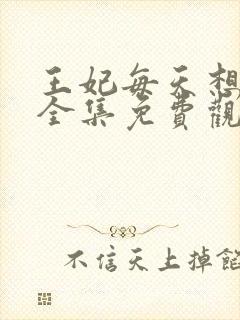 王妃每天想
全集免費觀
不信天上掉餡